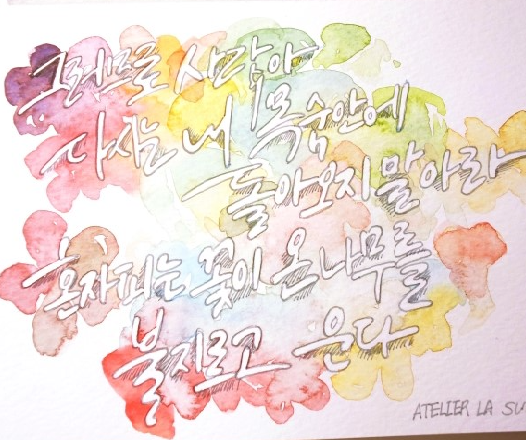 그러므로 사랑아
다시는 내 목숨안에
돌아오지 말아라
혼자 피는 꽃이 온 나무를
불지르고 운다
ATELIER LA